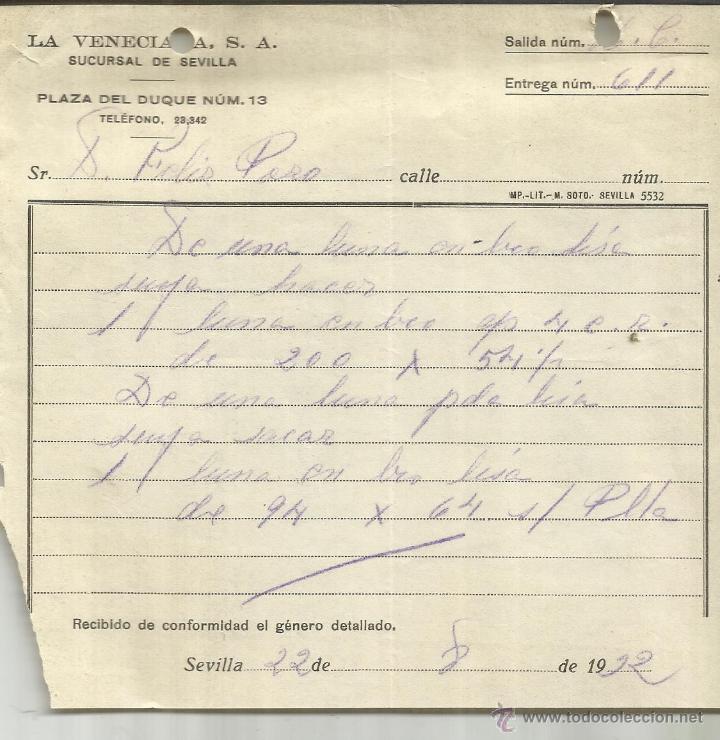 LA VENECIANA, S. A.
SUCURSAL DE SEVILLA
PLAZA DEL DUQUE NÚM. 13
TELÉFONO, 23,342
Salida núm. C.
Entrega núm. 611
Sr. D. Felix Pozo calle núm.
IMP.-LIT.-M. SOTO.- SEVILLA 5532
De una luna en bco lisa
suya hacer
1 / luna en bco 4 c.
de 200 x 54
De una luna pda lisa
suya sacar
1 / luna en bco lisa
de 94 x 64 s/ Plla
Recibido de conformidad el género detallado.
Sevilla 22 de 8 de 19
www.todocoleccion.net